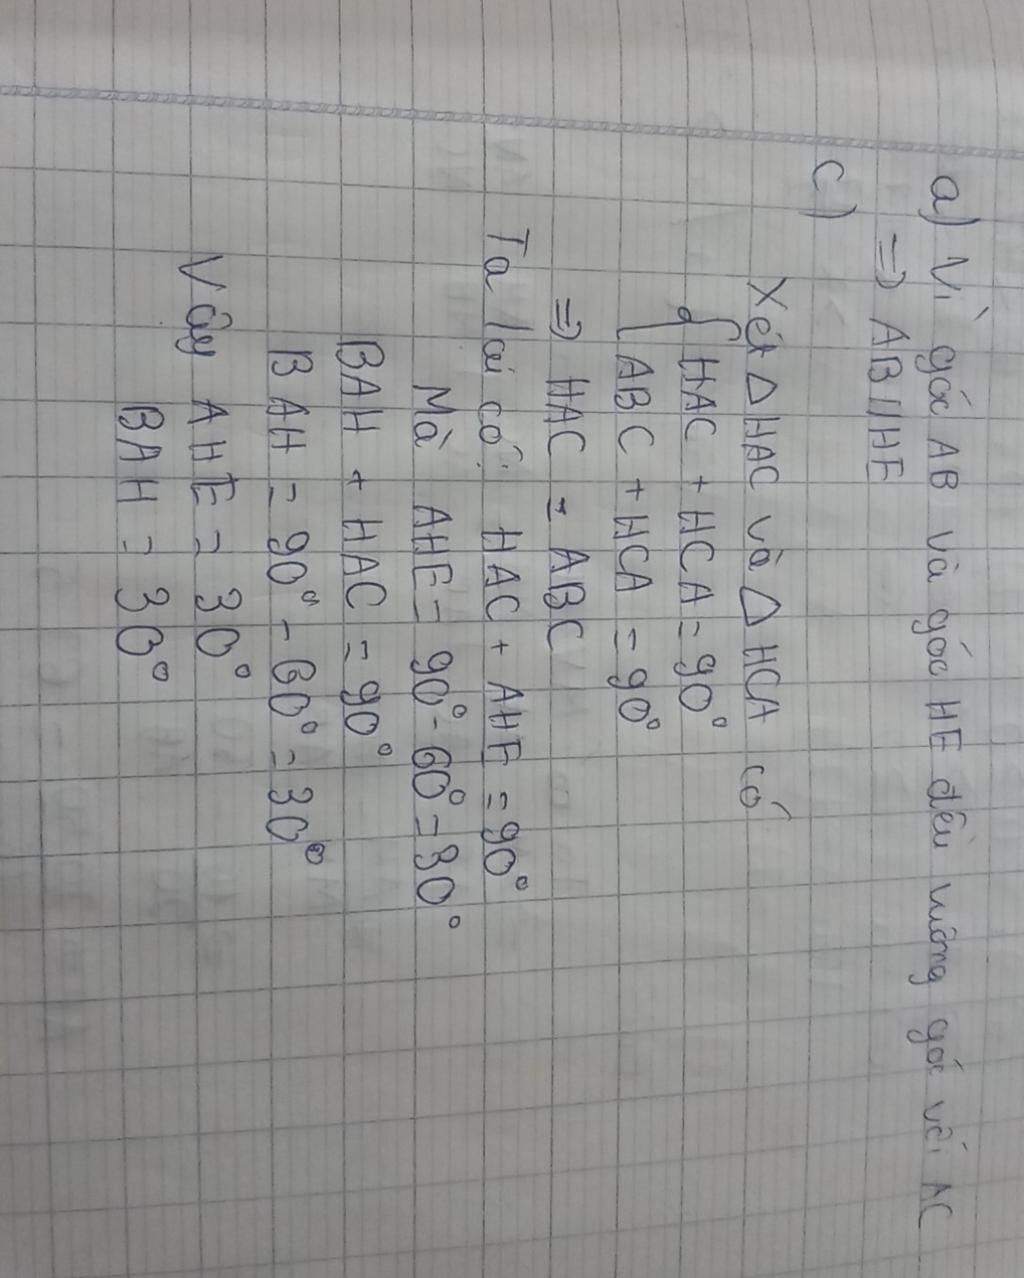 a) Vì góc AB và góc HE đều vuông góc với AC
=> AB // HE
c)
Xét △ HAC và △ HCA có
{ HAC + HCA = 90°
ABC + HCA = 90°
=> HAC = ABC
Ta lại có: HAC + AHE = 90°
Mà AHE = 90° - 60° = 30°
BAH + HAC = 90°
BAH = 90° - 60° = 30°
Vậy AHE = 30°
BAH = 30°